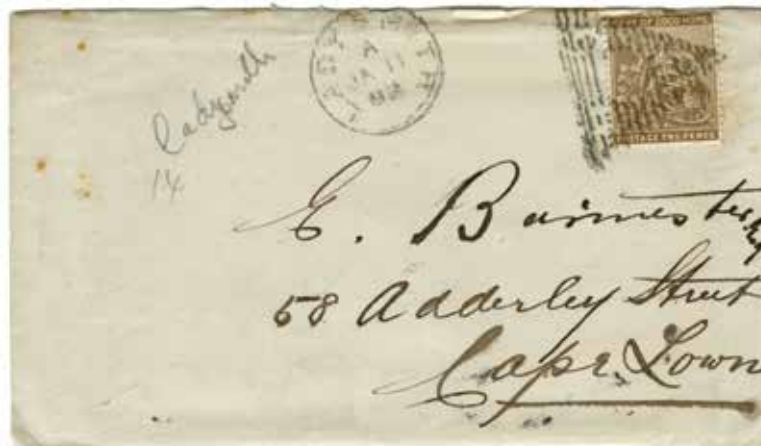 Ladysmith
14
A
JA 11
CAPE OF GOOD HOPE
POSTAGE TWO PENCE
E. Baimester
58 Adderley Street
Cape Town